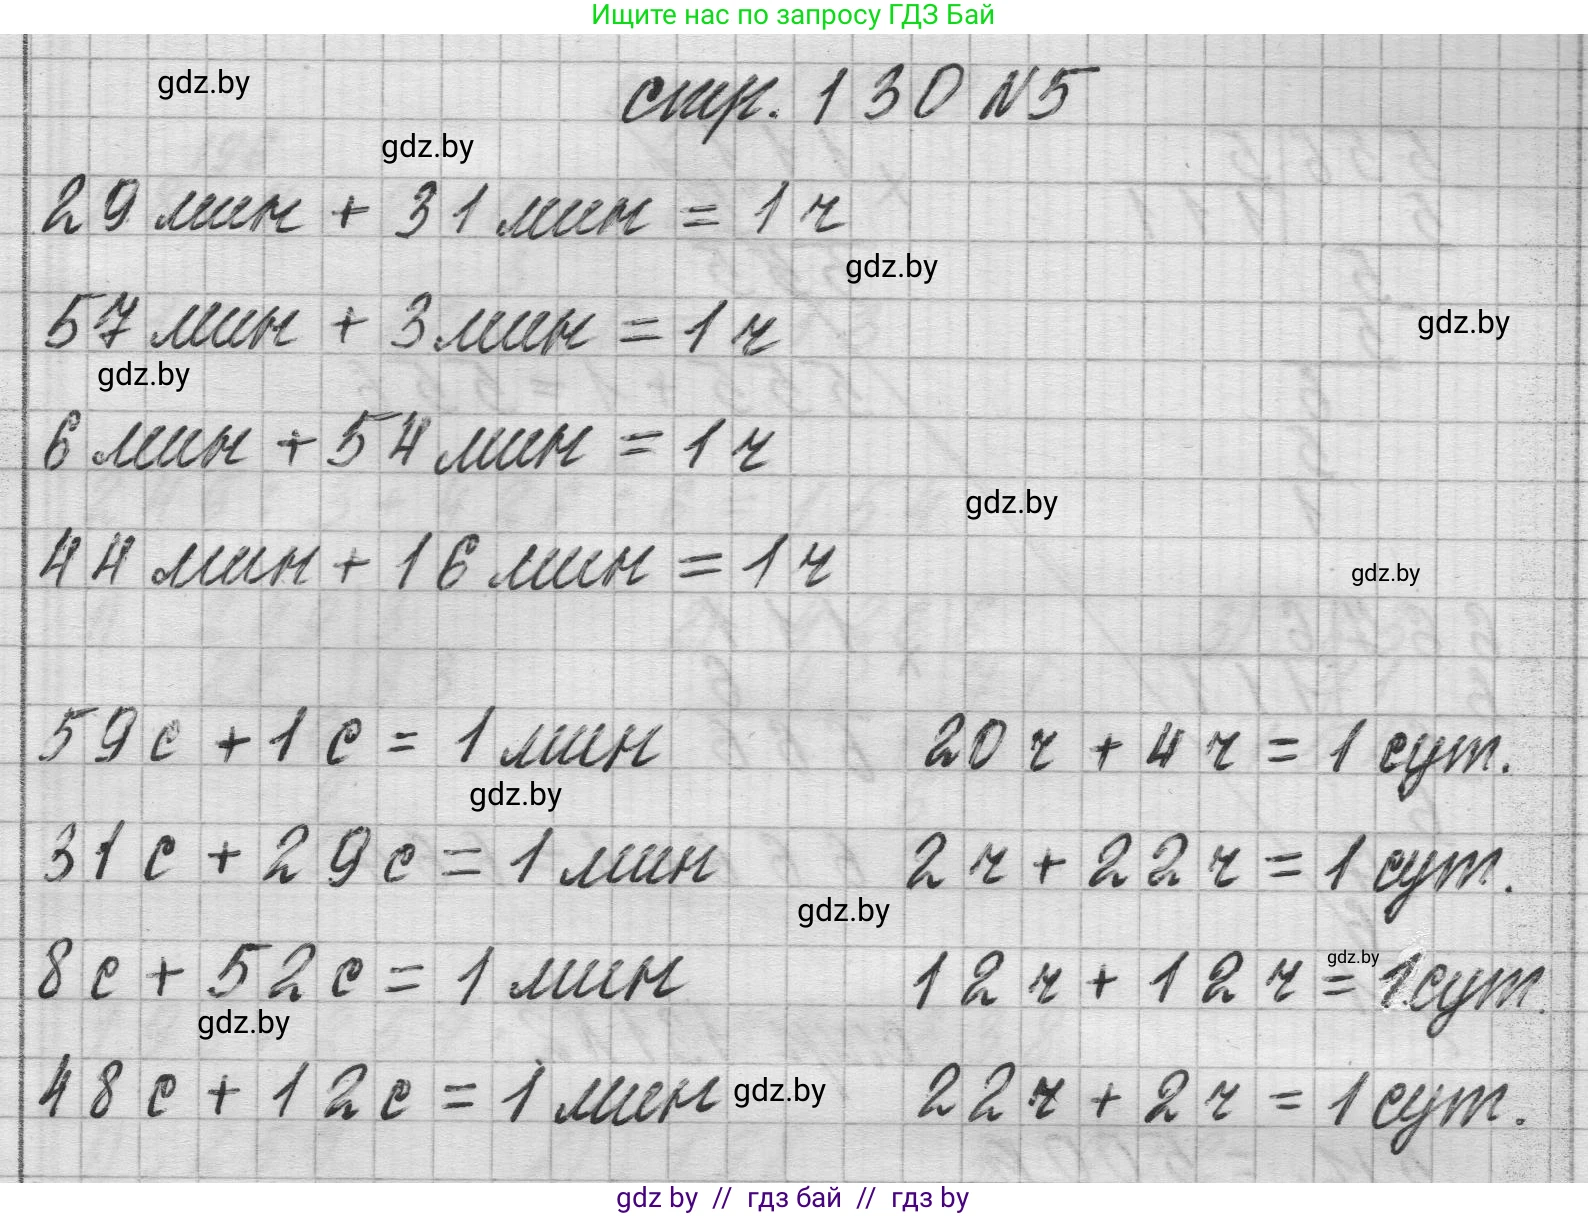 Ищите нас по запросу ГДЗ Бай
gdz.by
стр. 130 №5
gdz.by
29 мин + 31 мин = 1 ч
gdz.by
57 мин + 3 мин = 1 ч
gdz.by
gdz.by
6 мин + 54 мин = 1 ч
gdz.by
44 мин + 16 мин = 1 ч
gdz.by
59 с + 1 с = 1 мин
20 ч + 4 ч = 1 сут.
gdz.by
31 с + 29 с = 1 мин
2 ч + 22 ч = 1 сут.
gdz.by
8 с + 52 с = 1 мин
12 ч + 12 ч = 1 сут.
gdz.by
gdz.by
48 с + 12 с = 1 мин
gdz.by
22 ч + 2 ч = 1 сут.
gdz by // гдз бай // гдз by